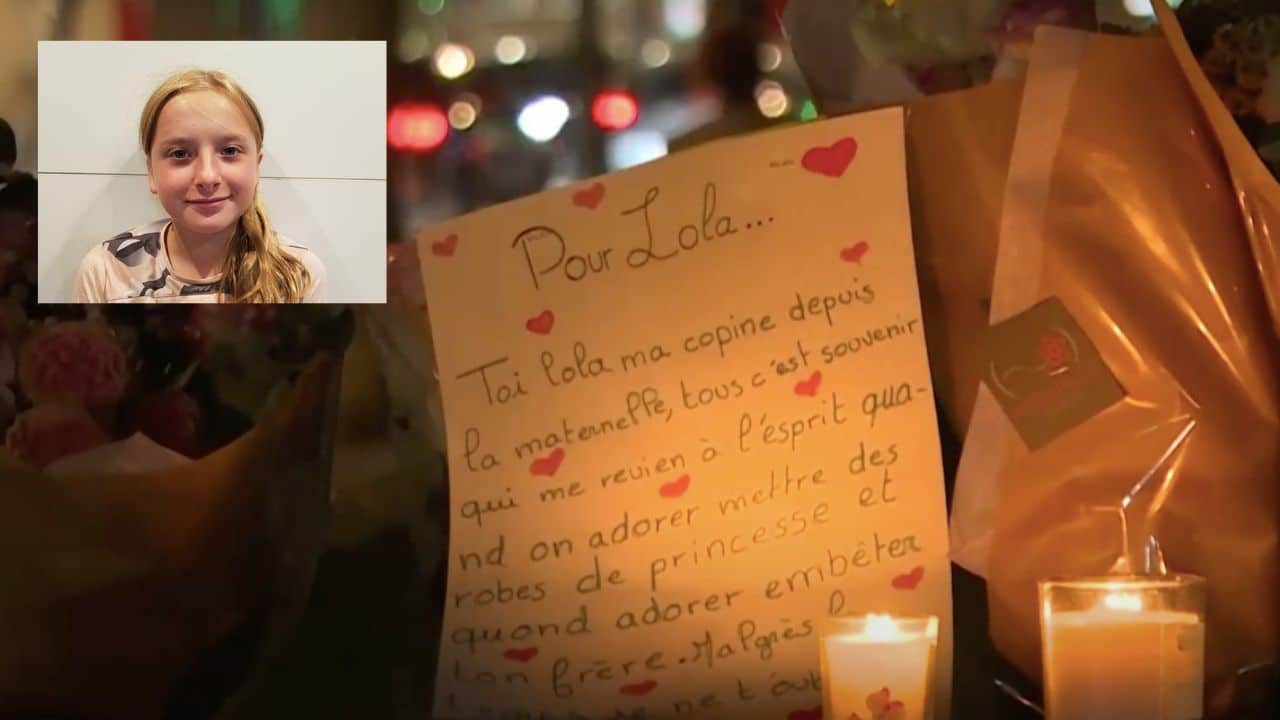 Pour Lola...
Toi lola ma copine depuis
la maternelle, tous c'est souvenir
qui me revien à l'esprit qua-
nd on adorer mettre des
robes de princesse et
quond adorer embêter
ton frère. Malgrès
ne t'oub